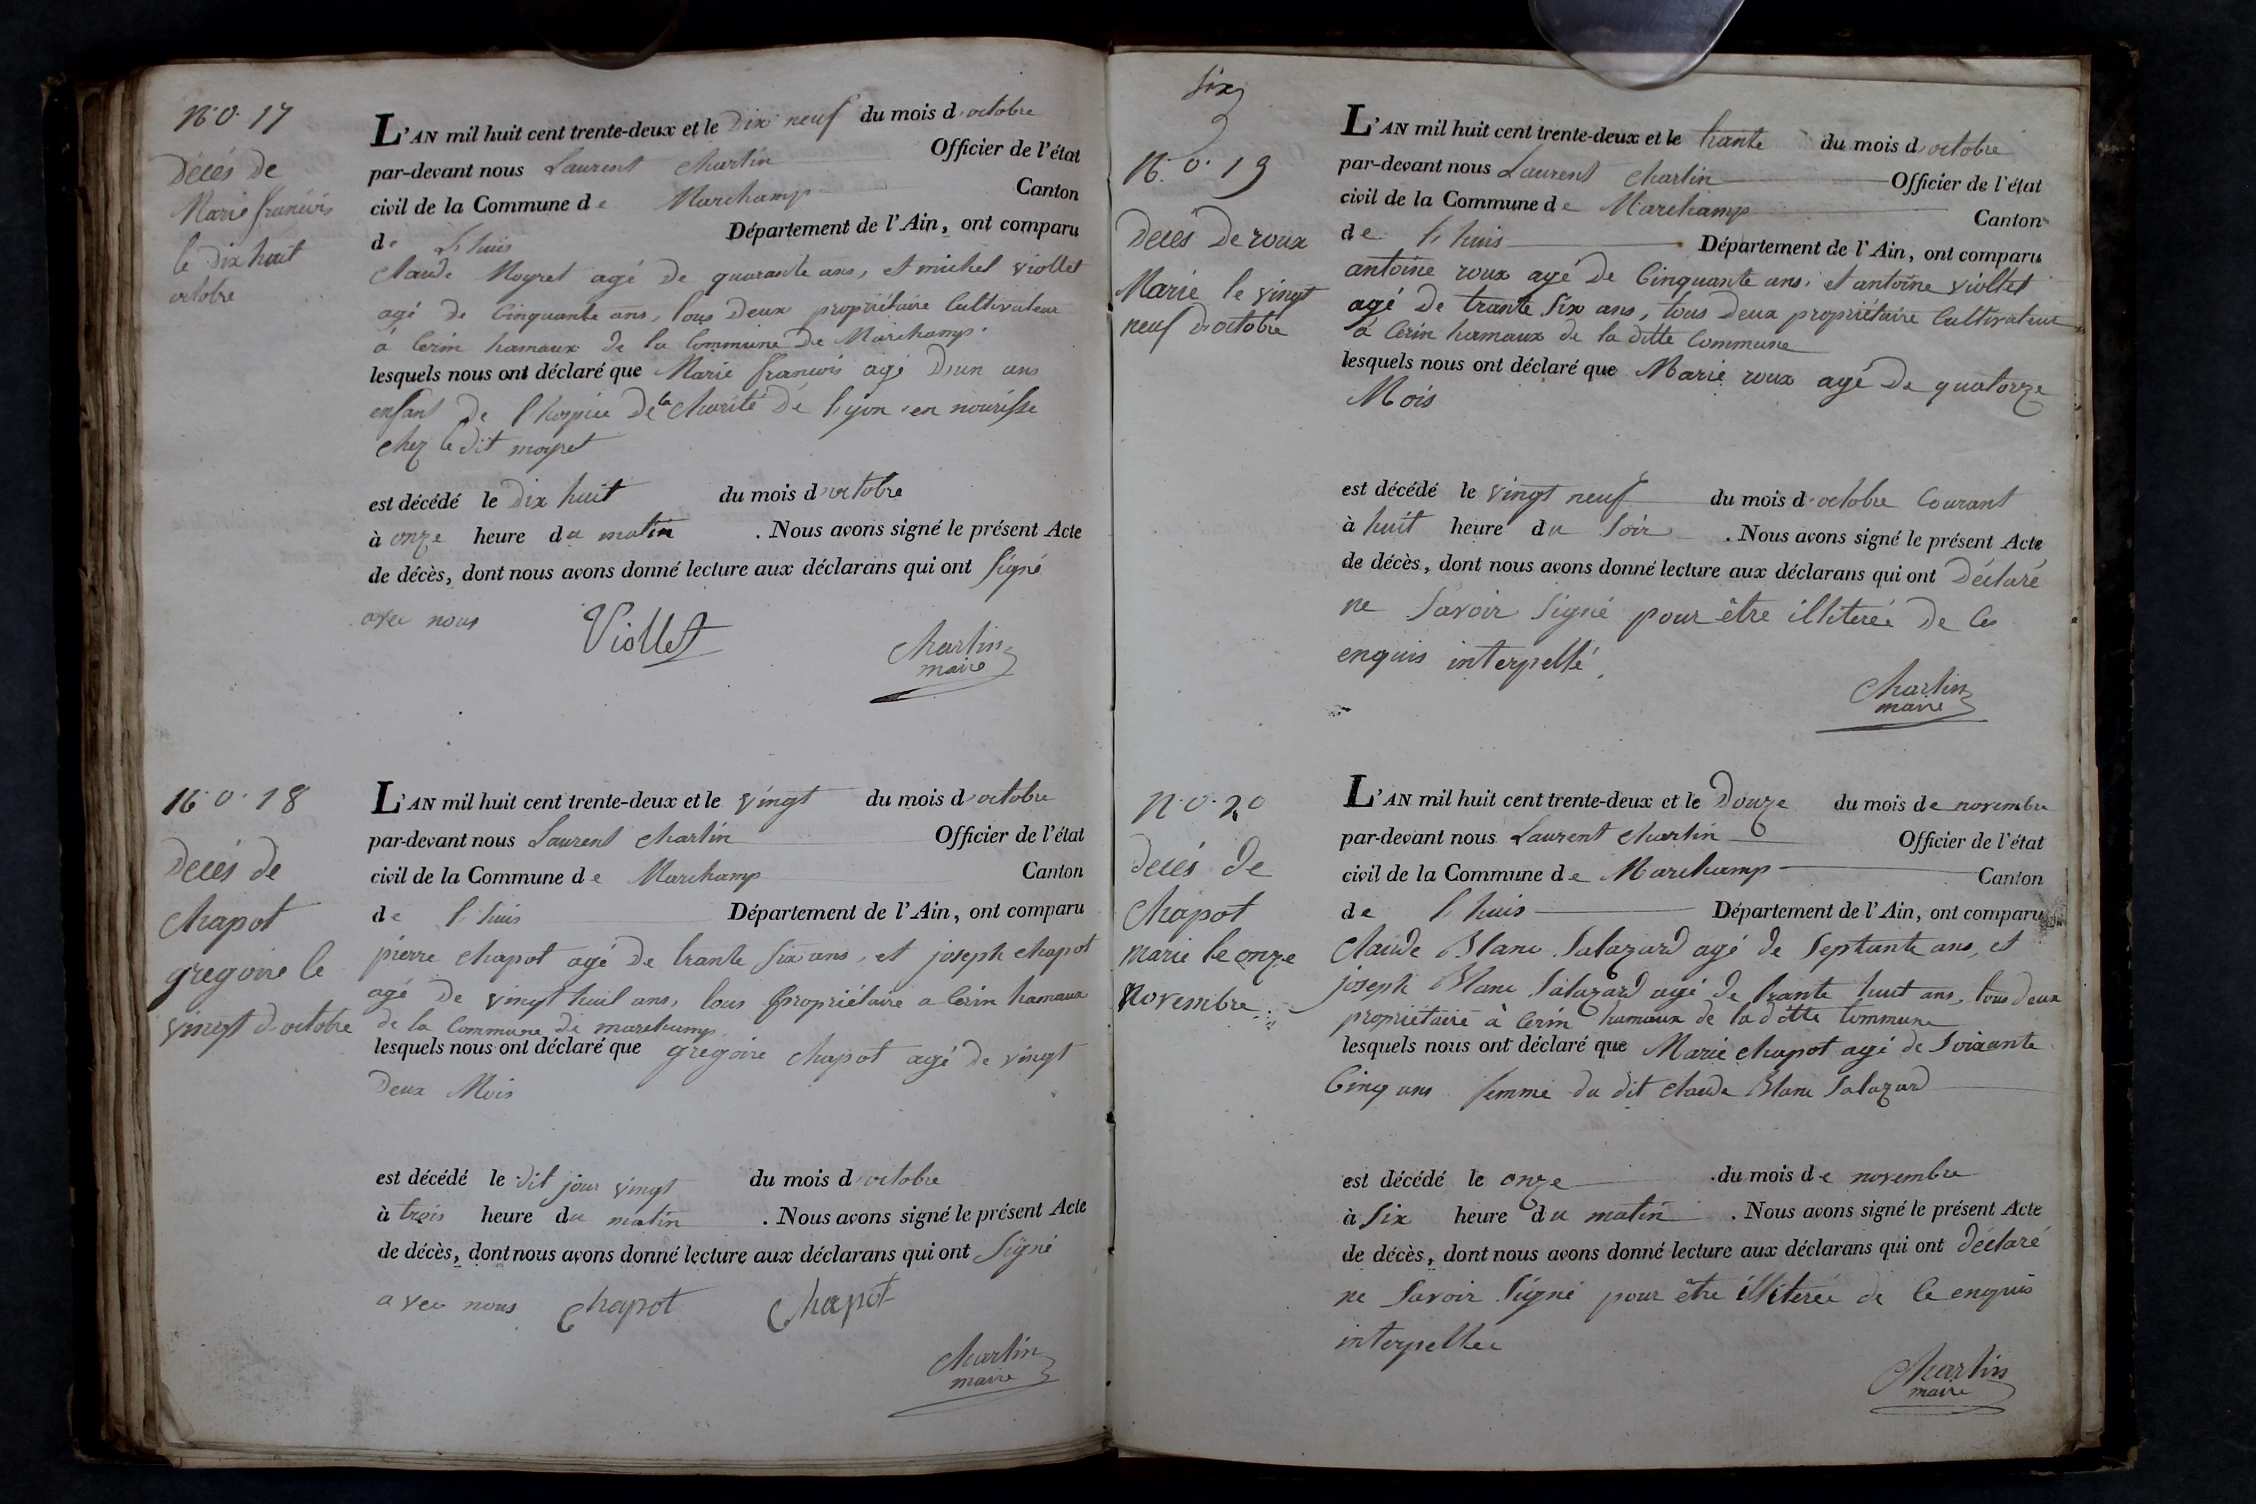 N.o. 17
Décés de
Marie francois
le dix huit
octobre
L'AN mil huit cent trente-deux et le Dix neuf du mois d'octobre
par-devant nous Laurent Charlin Officier de l'état
civil de la Commune de Marchamp Canton
de L'huis Département de l'Ain, ont comparu
Claude Moyret agé de quarante ans, et michel viollet
agé de Cinquante ans, tous Deux propriétaire Cultivateur
à Cerin hamaux de la Commune De Marchamp.
lesquels nous ont déclaré que Marie francois agé D'un ans
enfant de l'hospice De la Charité De lyon en nourisse
chez le dit moyret
est décédé le Dix huit du mois d'octobre
à onze heure du matin . Nous avons signé le présent Acte
de décès, dont nous avons donné lecture aux déclarans qui ont signé
avec nous Viollet Charlin
maire
N.o. 18
Décés de
Chapot
gregoire le
vingt d'octobre
L'AN mil huit cent trente-deux et le vingt du mois d'octobre
par-devant nous Laurent Charlin Officier de l'état
civil de la Commune de Marchamp Canton
de l'huis Département de l'Ain, ont comparu
pierre Chapot agé De trante six ans, et joseph Chapot
agé De vingt huit ans, tous propriétaire a Cerin hamaux
de la Commune de marchamp
lesquels nous ont déclaré que gregoire Chapot agé de vingt
Deux Mois
est décédé le dit jour vingt du mois d'octobre
à trois heure du matin . Nous avons signé le présent Acte
de décès, dont nous avons donné lecture aux déclarans qui ont signé
avec nous Chapot Chapot
Charlin
maire
six
N.o. 19
Decés De roux
Marie le vingt
neuf d'octobre
L'AN mil huit cent trente-deux et le trante du mois d'octobre
par-devant nous Laurent Charlin Officier de l'état
civil de la Commune de Marchamp Canton
de l'huis Département de l'Ain, ont comparu
antoine roux agé De Cinquante ans, et antoine viollet
agé De trante six ans, tous Deux propriétaire Cultivateur
à Cerin hamaux de la ditte Commune
lesquels nous ont déclaré que Marie roux agé De quatorze
Mois
est décédé le vingt neuf du mois d'octobre Courant
à huit heure du soir . Nous avons signé le présent Acte
de décès, dont nous avons donné lecture aux déclarans qui ont Déclaré
ne savoir signé pour être illiterée De Ce
enquis interpellé.
Charlin
maire
N.o. 20
decés de
Chapot
marie le onze
Novembre
L'AN mil huit cent trente-deux et le Douze du mois de novembre
par-devant nous Laurent Charlin Officier de l'état
civil de la Commune de Marchamp Canton
de l'huis Département de l'Ain, ont comparu
Claude Blanc Salazard agé de septante ans, et
joseph Blanc Salazard agé de trante huit ans, tous deux
propriétaire à Cerin hamaux de la ditte Commune
lesquels nous ont déclaré que Marie Chapot agé de soixante
Cinq ans femme du dit Claude Blanc Salazard
est décédé le onze du mois de novembre
à six heure du matin . Nous avons signé le présent Acte
de décès, dont nous avons donné lecture aux déclarans qui ont déclaré
ne savoir signé pour être illiterée de Ce enquis
interpellee
Charlin
maire